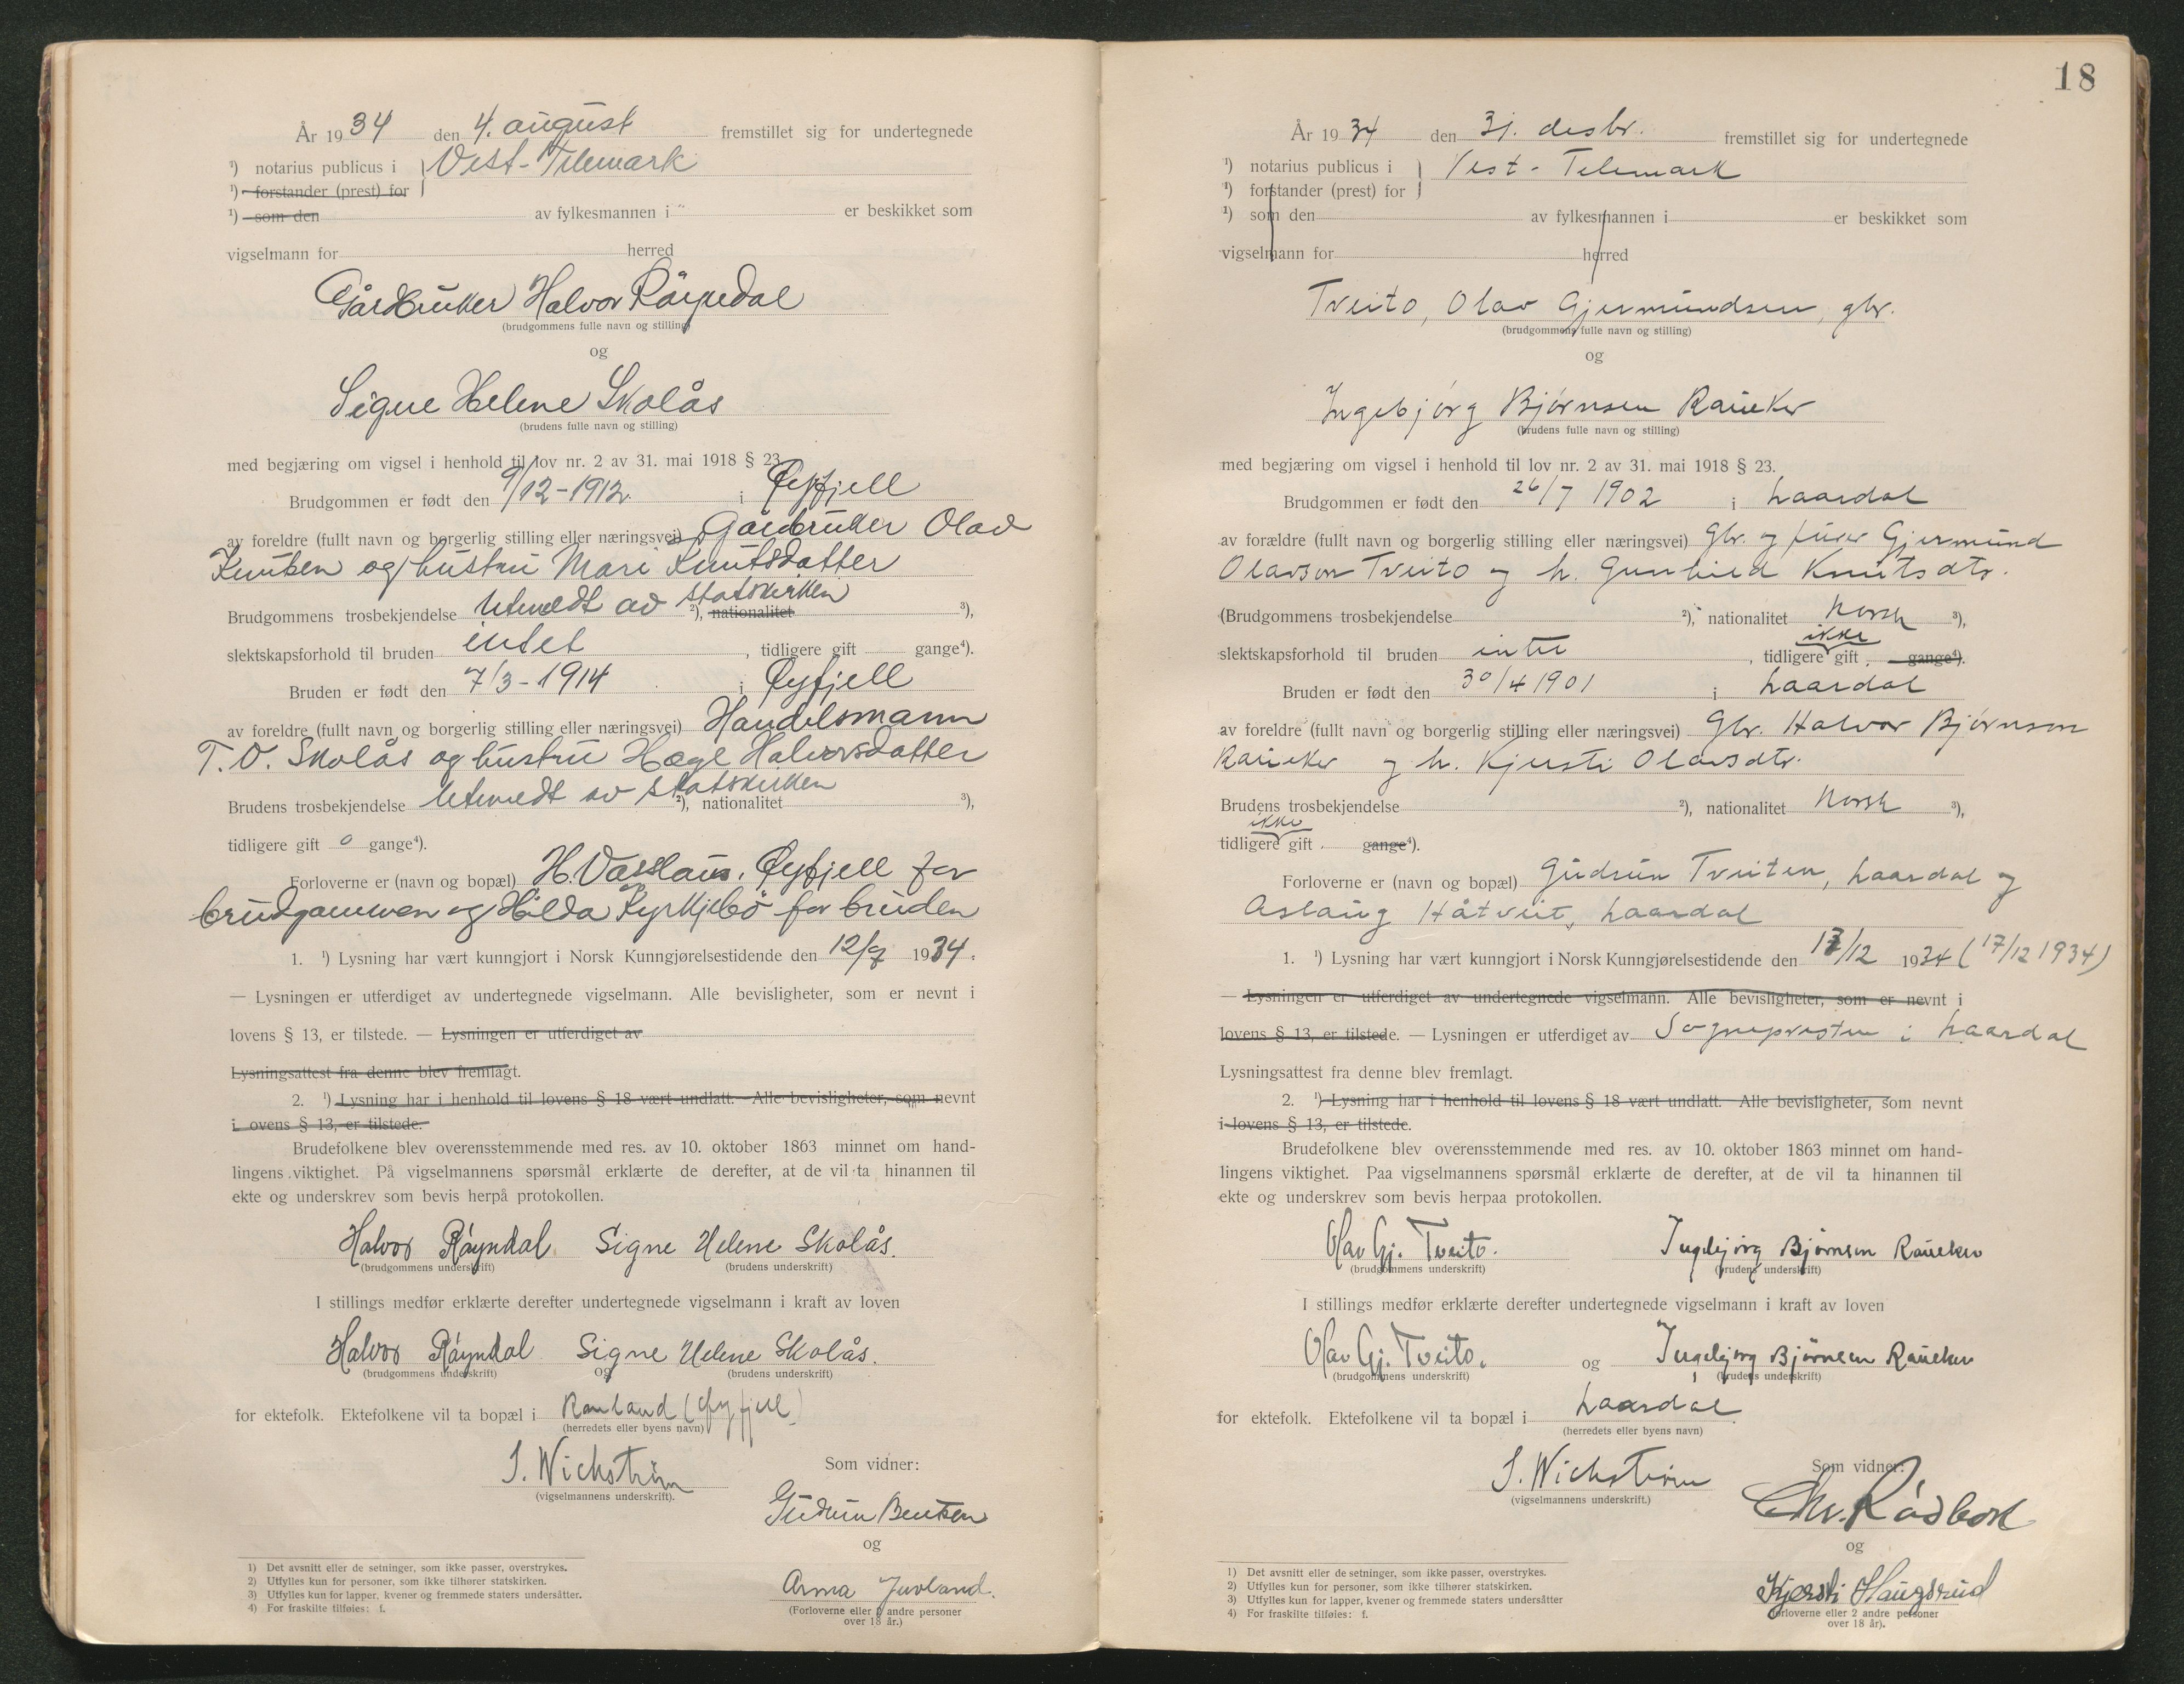 År 1934 den 4. august fremstillet sig for undertegnede
1) notarius publicus i Vest-Telemark
1) forstander (prest) for
1) som den av fylkesmannen i " er beskikket som
vigselmann for herred
Gårdbruker Halvor Röyndal
(brudgommens fulle navn og stilling)
og
Signe Helene Skolås
(brudens fulle navn og stilling)
med begjæring om vigsel i henhold til lov nr. 2 av 31. mai 1918 § 23.
Brudgommen er født den 9/12-1912. i Øyfjell
av foreldre (fullt navn og borgerlig stilling eller næringsvei) Gårdbruker Olav
Knutsen og hustru Mari Knutsdatter
Brudgommens trosbekjendelse Utmeldt av statskirken 2), nationalitet 3),
slektskapsforhold til bruden intet, tidligere gift gange4).
Bruden er født den 7/3-1914 i Øyfjell
av foreldre (fullt navn og borgerlig stilling eller næringsvei) Handelsmann
T. O. Skolås og hustru Hæge Halvorsdatter
Brudens trosbekjendelse Utmeldt av statskirken 2), nationalitet 3),
tidligere gift 0 gange4).
Forloverne er (navn og bopæl) H. Vasslaus. Øyfjell for
brudgommen og Hilda Kyrkjebö for bruden
1. 1) Lysning har vært kunngjort i Norsk Kunngjørelsestidende den 12/7 1934.
— Lysningen er utferdiget av undertegnede vigselmann. Alle bevisligheter, som er nevnt i
lovens § 13, er tilstede. — Lysningen er utferdiget av
Lysningsattest fra denne blev fremlagt.
2. 1) Lysning har i henhold til lovens § 18 vært undlatt. Alle bevisligheter, som nevnt
i ovens § 13, er tilstede.
Brudefolkene blev overensstemmende med res. av 10. oktober 1863 minnet om hand-
lingens viktighet. På vigselmannens spørsmål erklærte de derefter, at de vil ta hinannen til
ekte og underskrev som bevis herpå protokollen.
Halvor Röyndal Signe Helene Skolås.
(brudgommens underskrift) (brudens underskrift)
I stillings medfør erklærte derefter undertegnede vigselmann i kraft av loven
Halvor Röyndal Signe Helene Skolås.
(brudgommens underskrift) og (brudens underskrift)
for ektefolk. Ektefolkene vil ta bopæl i Rauland (Øyfjell)
(herredets eller byens navn)
S. Wichstrøm Som vidner:
(vigselmannens underskrift).
Gudrun Bentsen
og
Anna Juvland.
(Forloverne eller 2 andre personer
over 18 år.)
1) Det avsnitt eller de setninger, som ikke passer, overstrykes.
2) Utfylles kun for personer, som ikke tilhører statskirken.
3) Utfylles kun for lapper, kvener og fremmede staters undersåtter.
4) For fraskilte tilføies: f.
18
År 1934 den 31. desbr. fremstillet sig for undertegnede
1) notarius publicus i Vest-Telemark
1) forstander (prest) for
1) som den av fylkesmannen i er beskikket som
vigselmann for herred
Tveito, Olav Gjermundsen, gbr.
(brudgommens fulle navn og stilling)
og
Ingebjörg Bjørnsen Raueker
(brudens fulle navn og stilling)
med begjæring om vigsel i henhold til lov nr. 2 av 31. mai 1918 § 23.
Brudgommen er født den 26/7 1902 i Laardal
av forældre (fullt navn og borgerlig stilling eller næringsvei) Gbr. og Gjermund
Olavson Tveito og h. Gunhild Knutsdtr.
(Brudgommens trosbekjendelse 2), nationalitet Norsk 3),
slektskapsforhold til bruden intet, tidligere ikke gift gange4).
Bruden er født den 30/4 1901 i Laardal
av foreldre (fullt navn og borgerlig stilling eller næringsvei) Gbr. Halvor Bjørnsen
Raueker og h. Kjersti Olavsdtr.
Brudens trosbekjendelse 2), nationalitet Norsk 3),
tidligere ikke gift gange4).
Forloverne er (navn og bopæl) Gudrun Tveiten, Laardal og
Aslaug Håtveit, Laardal
1. 1) Lysning har vært kunngjort i Norsk Kunngjørelsestidende den 17/12 1934 (17/12 1934)
— Lysningen er utferdiget av undertegnede vigselmann. Alle bevisligheter, som er nevnt i
lovens § 13, er tilstede. — Lysningen er utferdiget av Sognepresten i Laardal
Lysningsattest fra denne blev fremlagt.
2. 1) Lysning har i henhold til lovens § 18 vært undlatt. Alle bevisligheter, som nevnt
i lovens § 13, er tilstede.
Brudefolkene blev overensstemmende med res. av 10. oktober 1863 minnet om hand-
lingens viktighet. Paa vigselmannens spørsmål erklærte de derefter, at de vil ta hinannen til
ekte og underskrev som bevis herpaa protokollen.
Olav Gj. Tveito. Ingebjörg Bjørnsen Raueker
(brudgommens underskrift) (brudens underskrift)
I stillings medfør erklærte derefter undertegnede vigselmann i kraft av loven
Olav Gj. Tveito. og Ingebjörg Bjørnsen Raueker
(brudgommens underskrift) (brudens underskrift)
for ektefolk. Ektefolkene vil ta bopæl i Laardal
(herredets eller byens navn)
S. Wichstrøm Som vidner:
(vigselmannens underskrift.)
Chr. Rödbos
og
Kjersti Haugsrud
(Forloverne eller 2 andre personer
over 18 år).
1) Det avsnitt eller de setninger, som ikke passer, overstrykes.
2) Utfylles kun for personer, som ikke tilhører statskirken.
3) Utfylles kun for lapper, kvener og fremmede staters undersåtter
4) For fraskilte tilføies: f.